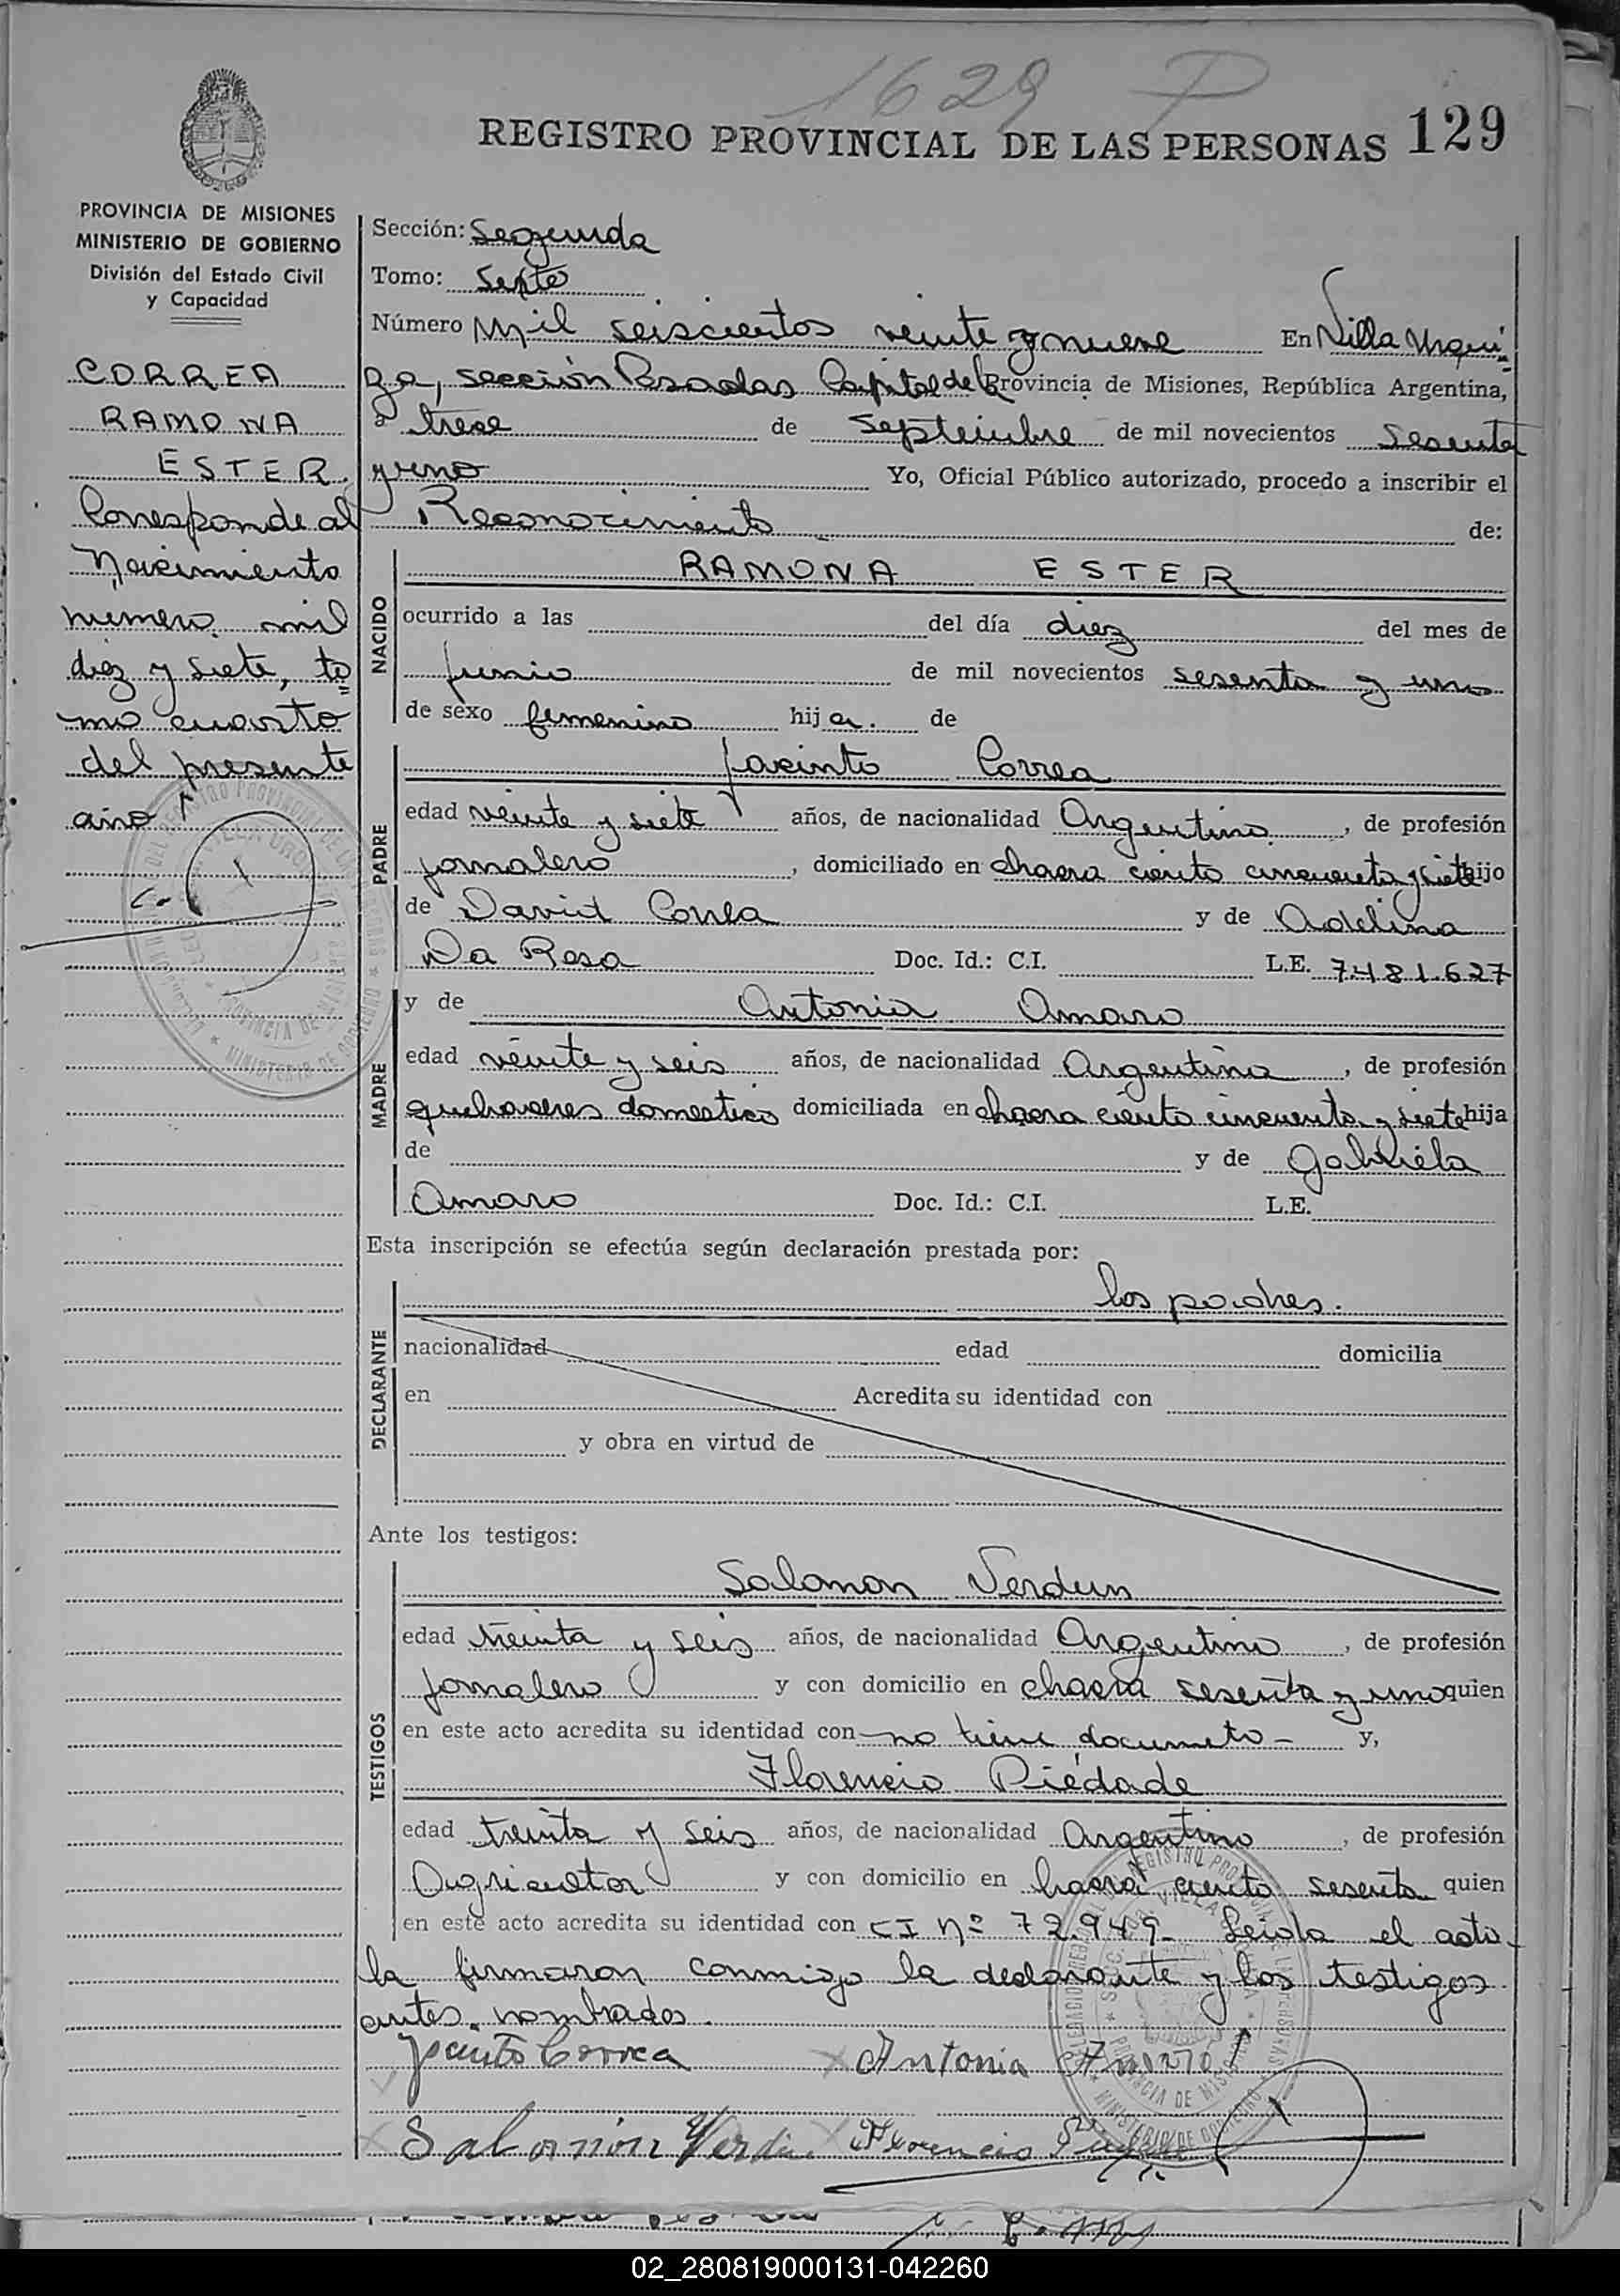 1629 P
REGISTRO PROVINCIAL DE LAS PERSONAS 129
PROVINCIA DE MISIONES
MINISTERIO DE GOBIERNO
División del Estado Civil
y Capacidad
CORREA
RAMONA
ESTER.
Corresponde al
Nacimiento
numero mil
diez y siete, to=
mo cuarto
del presente
año
Sección: Segunda
Tomo: Sexto
Número Mil seiscientos veinte y nueve En Villa Urqui=
za, sección Posadas Capital de la Provincia de Misiones, República Argentina,
a trece de Septiembre de mil novecientos Sesenta
y uno Yo, Oficial Público autorizado, procedo a inscribir el
Reconocimiento de:
NACIDO
RAMONA ESTER
ocurrido a las del día diez del mes de
junio de mil novecientos sesenta y uno
de sexo femenino hija. de
PADRE
Jacinto Correa
edad veinte y siete años, de nacionalidad Argentino, de profesión
jornalero, domiciliado en chacra ciento cincuenta y siete hijo
de David Correa y de Adelina
Da Rosa Doc. Id.: C.I. L.E. 7.481.627
MADRE
y de Antonia Amaro
edad veinte y seis años, de nacionalidad Argentina, de profesión
quehaceres domesticos domiciliada en chacra ciento cincuenta y siete hija
de y de Gabriela
Amaro Doc. Id.: C.I. L.E.
Esta inscripción se efectúa según declaración prestada por:
DECLARANTE
los padres.
nacionalidad edad domicilia
en Acredita su identidad con
y obra en virtud de
Ante los testigos:
TESTIGOS
Salomon Verdun
edad treinta y seis años, de nacionalidad Argentino, de profesión
jornalero y con domicilio en chacra sesenta y uno quien
en este acto acredita su identidad con no tiene documeto - y,
Florencio Piedade
edad treinta y seis años, de nacionalidad Argentino, de profesión
Agricultor y con domicilio en chacra ciento sesenta quien
en este acto acredita su identidad con CI Nº 72.949- Leida el acta
la firmaron conmigo la declarante y los testigos
antes nombrados.
Jacinto Correa Antonia Amaro
Salomón Verdun Florencio
02_280819000131-042260